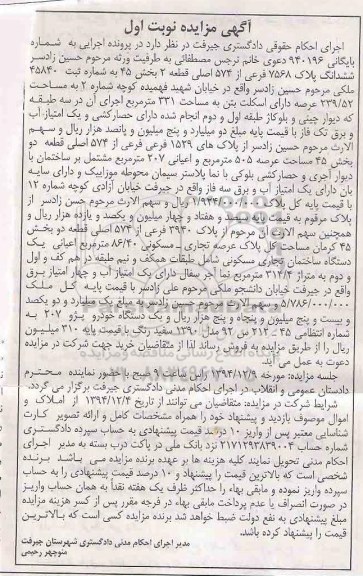 آگهی مزایده نوبت اول
اجرای احکام حقوقی دادگستری جیرفت در نظر دارد در پرونده اجرایی به شماره
بایگانی ۹۴۰۱۹۶ دعوی خانم نرجس مصطفائی به طرفیت ورثه مرحوم حسین زادسر
ششدانگ پلاک ۷۵۶۸ فرعی از ۵۷۴ اصلی قطعه ۲ بخش ۴۵ به شماره ثبت ۴۵۸۴۰
ملکی مرحوم حسین زادسر واقع در خیابان شهید فهمیده کوچه شماره ۲ به مساحت
۲۳۹/۵۲ عرصه دارای اسکلت بتن به مساحت ۳۳۱ مترمربع اجرای آن در سه طبقه
که دیوار چینی و بلوکاژ طبقه اول و دوم انجام شده دارای حصارکشی و یک امتیاز آب
و برق تک فاز با قیمت پایه مبلغ دو میلیارد و پنج میلیون و پانصد هزار ریال و سهم
الارث مرحوم حسین زادسر از پلاک های ۱۵۲۹ فرعی فرعی از ۵۷۴ اصلی قطعه دو
بخش ۴۵ مساحت عرصه ۵۰۵ مترمربع و اعیانی ۲۰۷ مترمربع مشتمل بر ساختمان با
دیوار آجری و حصارکشی بلوکی با نما پلاستر سیمان محوطه موزاییک و دارای سایه
بان دارای یک امتیاز آب و برق سه فاز واقع در جیرفت خیابان آزادی کوچه شماره ۱۲
با قیمت پایه کل پلاک ریال و سهم الارث مرحوم حسن زادسر از
پلاک مرقوم به قیمت پایه سیصد و هفتاد و چهار میلیون و یکصد و یازده هزار ریال و
همچنین سهم الارث آن مرحوم از پلاک ۳۹۴۰ فرعی از ۵۷۴ اصلی قطعه دو بخش
۴۵ کرمان مساحت کل پلاک عرصه تجاری ـ مسکونی ۸۶/۴۰ مترمربع اعیانی یک
دستگاه ساختمان تجاری مسکونی شامل طبقات همکف و نیم طبقه در هم کف و اول
و دوم به متراژ ۳۱۴/۴ مترمربع نما آجر سفال دارای یک امتیاز آب و چهار امتیاز برق
واقع در جیرفت خیابان دانشجو ملکی مرحوم علی زادسر با قیمت پایه کل ملک
۵/۷۸۶/۰۰۰/۰۰۰ و سهم الارث مرحوم حسین زادسر به مبلغ یک میلیارد و دو یکصد
و بیست و پنج میلیون و پنجاه و پنج هزار ریال و یک دستگاه خودرو پژو ۲۰۷ به
شماره انتظامی ۴۵ ـ ۲۱۲ س ۹۲ مدل ۱۳۹۰ سفید رنگ با قیمت پایه ۳۱۰ میلیون
ریال را از طریق مزایده به فروش رساند لذا از متقاضیان خرید جهت شرکت در مزایده
دعوت به عمل می آید
جلسه مزایده: مورخه ۱۳۹۴/۱۲/۹ این ساعت صبح با حضور نماینده محترم
دادستان عمومی و انقلاب در اجرای احکام مدنی دادگستری جیرفت برگزار می گردد.
شرایط شرکت در مزایده: متقاضیان می توانند از تاریخ ۱۳۹۴/۱۲/۴ از املاک و
اموال موصوف بازدید و پیشنهاد خود را همراه مشخصات کامل و ارائه تصویر کارت
شناسایی معتبر پس از واریز ۱۰ درصد قیمت پیشنهادی به حساب سپرده دادگستری
شماره حساب ۲۱۷۱۲۹۳۸۳۹۰۰۴ نزد بانک ملی در پاکت درب بسته به مدیر اجرای
احکام مدنی تحویل نمایند کلیه هزینه ها بر عهده برنده مزایده می باشد برنده
شخصی است که بالاترین قیمت را پیشنهاد و ۱۰ درصد قیمت پیشنهادی را به حساب
سپرده واریز نموده و مابقی بهاء را حداکثر ظرف یک هفته نقداً به همان حساب واریز
در صورت انصراف یا عدم پرداخت مابقی بهاء در فرجه مقرر پس از کسر هزینه مزایده
مبلغ پیشنهادی به نفع دولت ضبط خواهد شد برنده مزایده کسی است که بالاترین
قیمت را پیشنهاد کرده باشد.
مدیر اجرای احکام مدنی دادگستری شهرستان جیرفت
منوچهر رحیمی